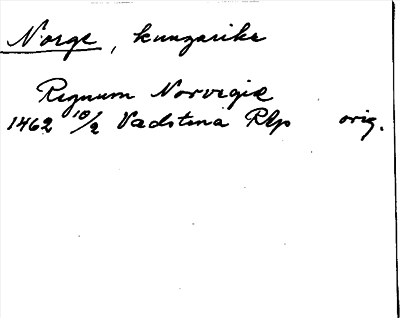 Norge, kungarike
Regnum Norvegiæ
1462 10/2 Vadstena RAp orig.